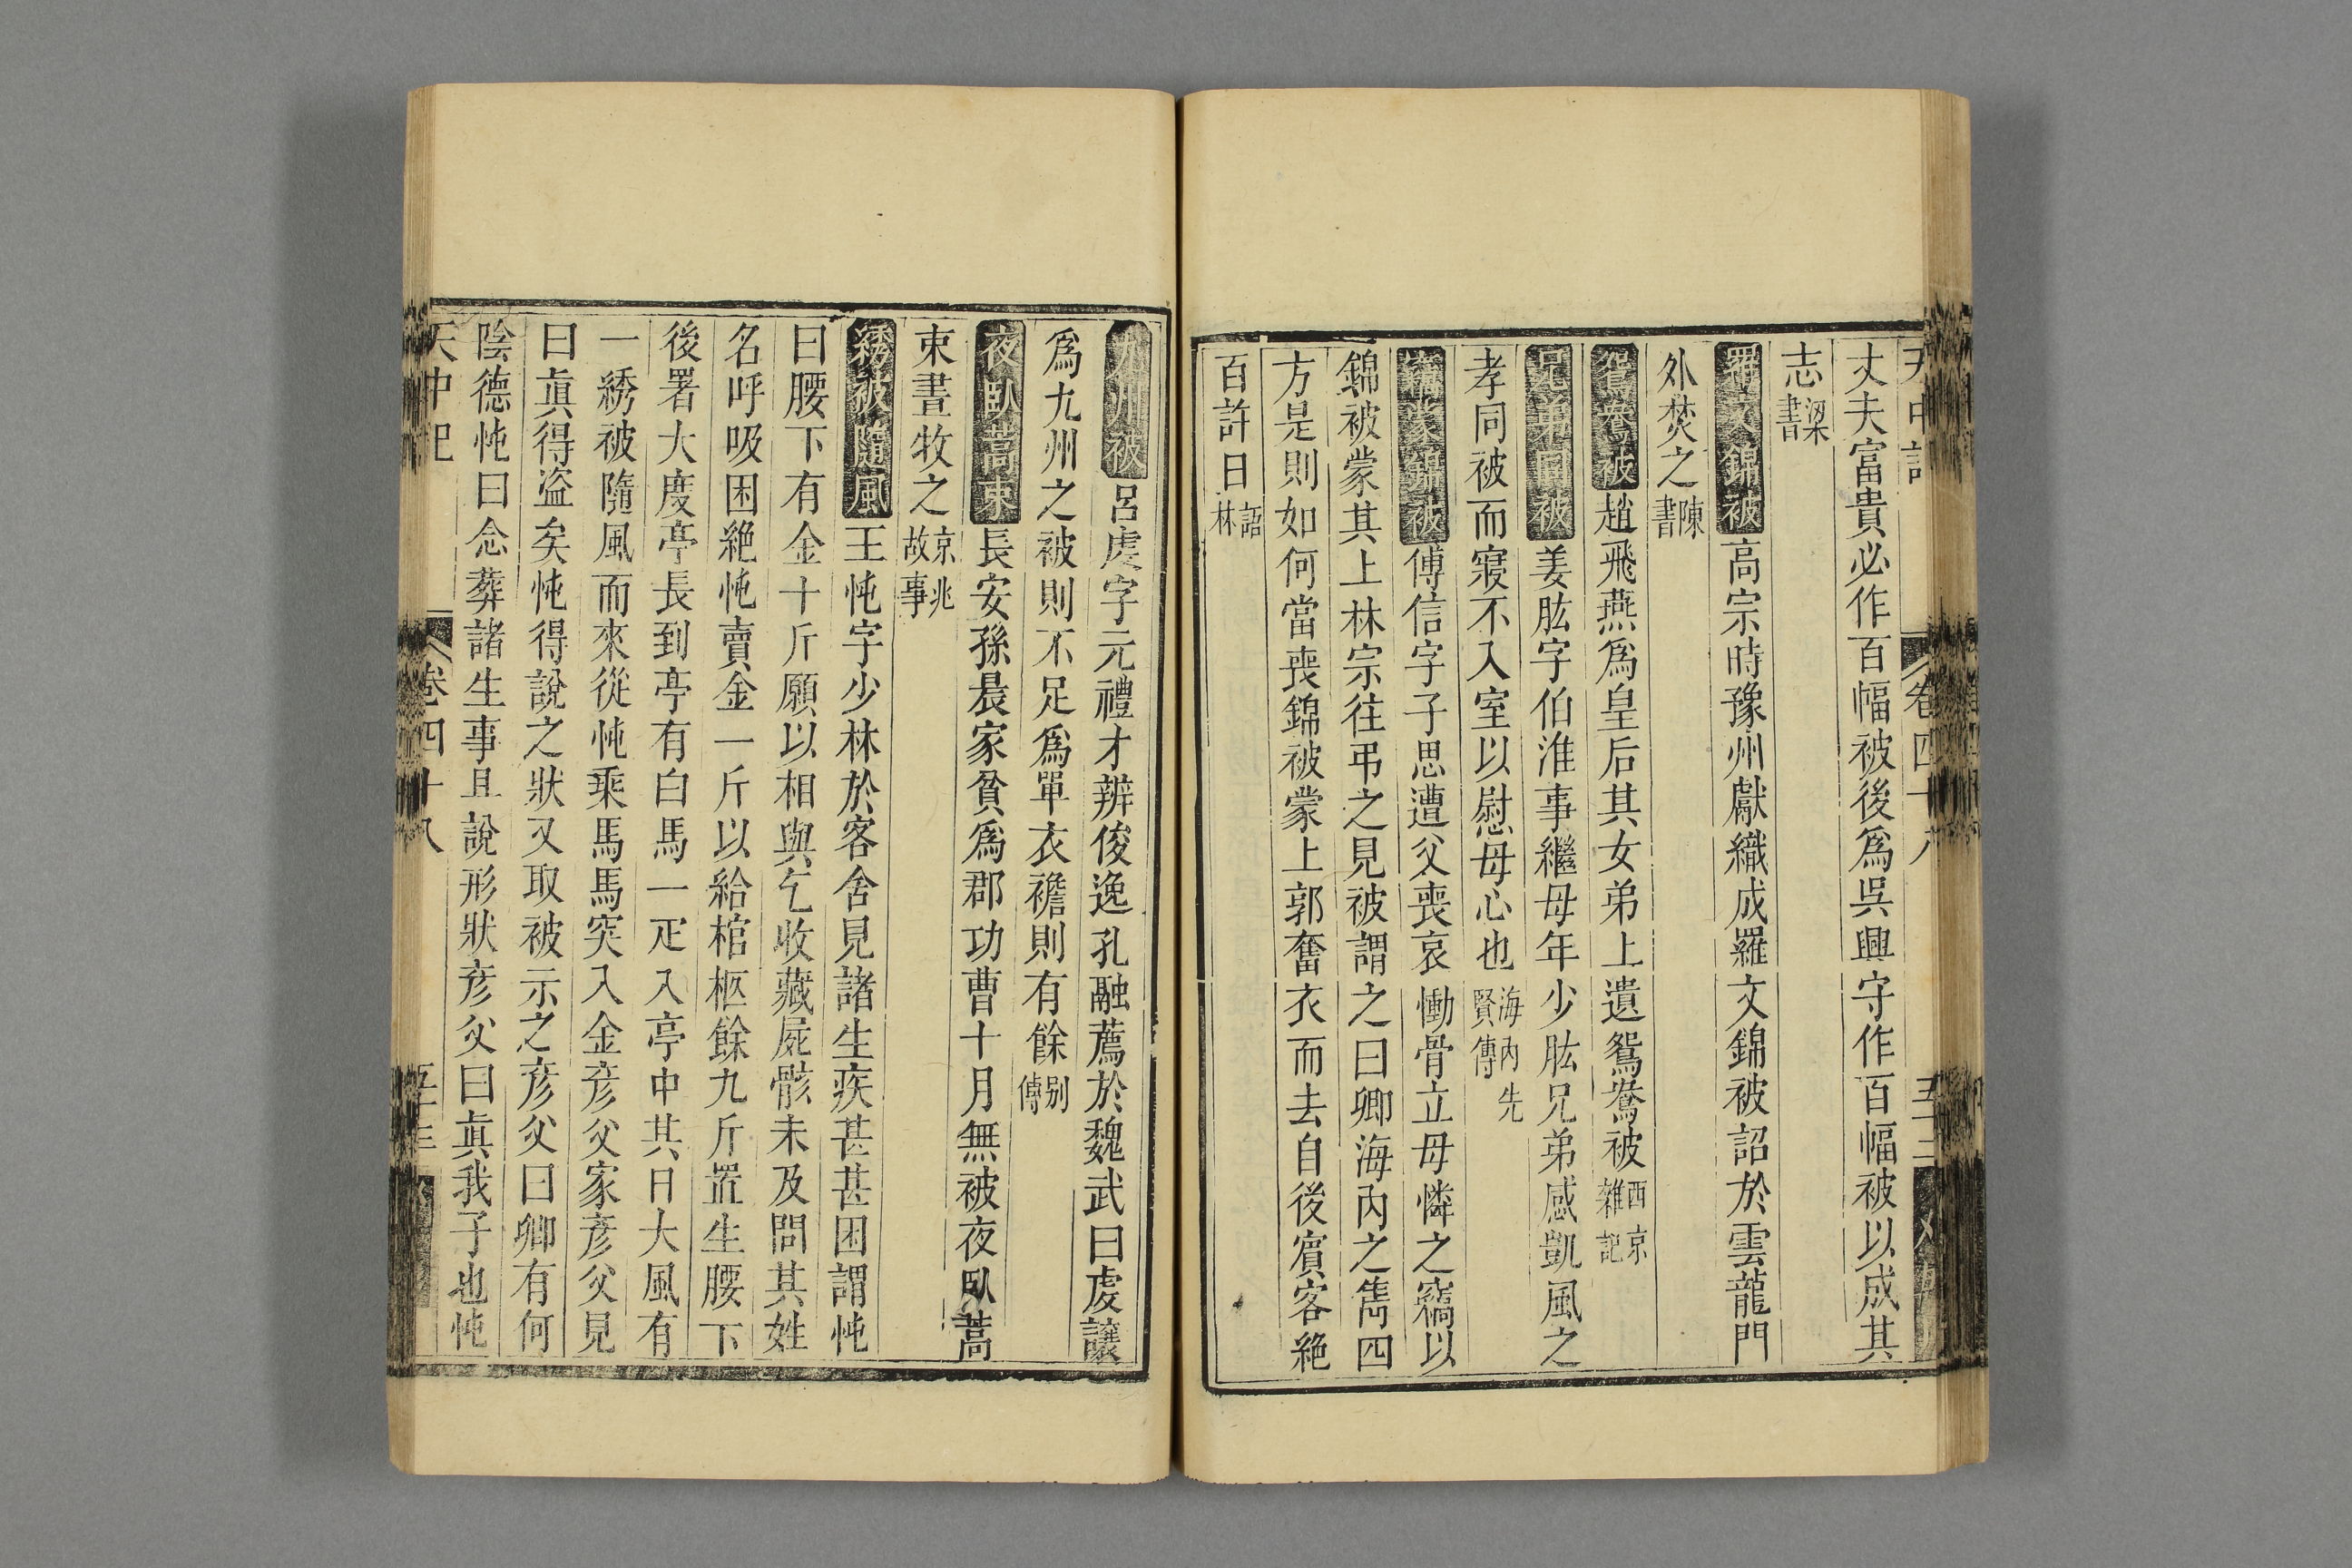 天中記 卷四十八
丈夫富貴必作百幅被後爲吳興守作百幅被以成其
志梁書
羅文錦被高宗時豫州獻織成羅文錦被詔於雲龍門
外焚之陳書
鴛鴦被趙飛燕爲皇后其女弟上遺鴛鴦被西京雜記
兄弟同被姜肱字伯淮事繼母年少肱兄弟感凱風之
孝同被而寢不入室以慰母心也海內先賢傳
竊蒙錦被傅信字子思遭父喪哀慟骨立母憐之竊以
錦被蒙其上林宗往弔之見被謂之曰卿海內之雋四
方是則如何當喪錦被蒙上郭奮衣而去自後賓客絶
百許日語林
九州被呂虔字元禮才辨俊逸孔融薦於魏武曰虔讓
爲九州之被則不足爲單衣襜則有餘别傳
夜臥蒿束長安孫晨家貧爲郡功曹十月無被夜臥蒿
束晝牧之京兆故事
綉被隨風王忳字少林於客舍見諸生疾甚甚困謂忳
曰腰下有金十斤願以相與乞收藏屍骸未及問其姓
名呼吸困絶忳賣金一斤以給棺柩餘九斤置生腰下
後署大度亭長到亭有白馬一疋入亭中其日大風有
一綉被隨風而來從忳乘馬馬突入金彦父家彦父見
曰真得盗矣忳得說之狀又取被示之彦父曰卿有何
陰德忳曰念葬諸生事且說形狀彦父曰真我子也忳
天中記 卷四十八